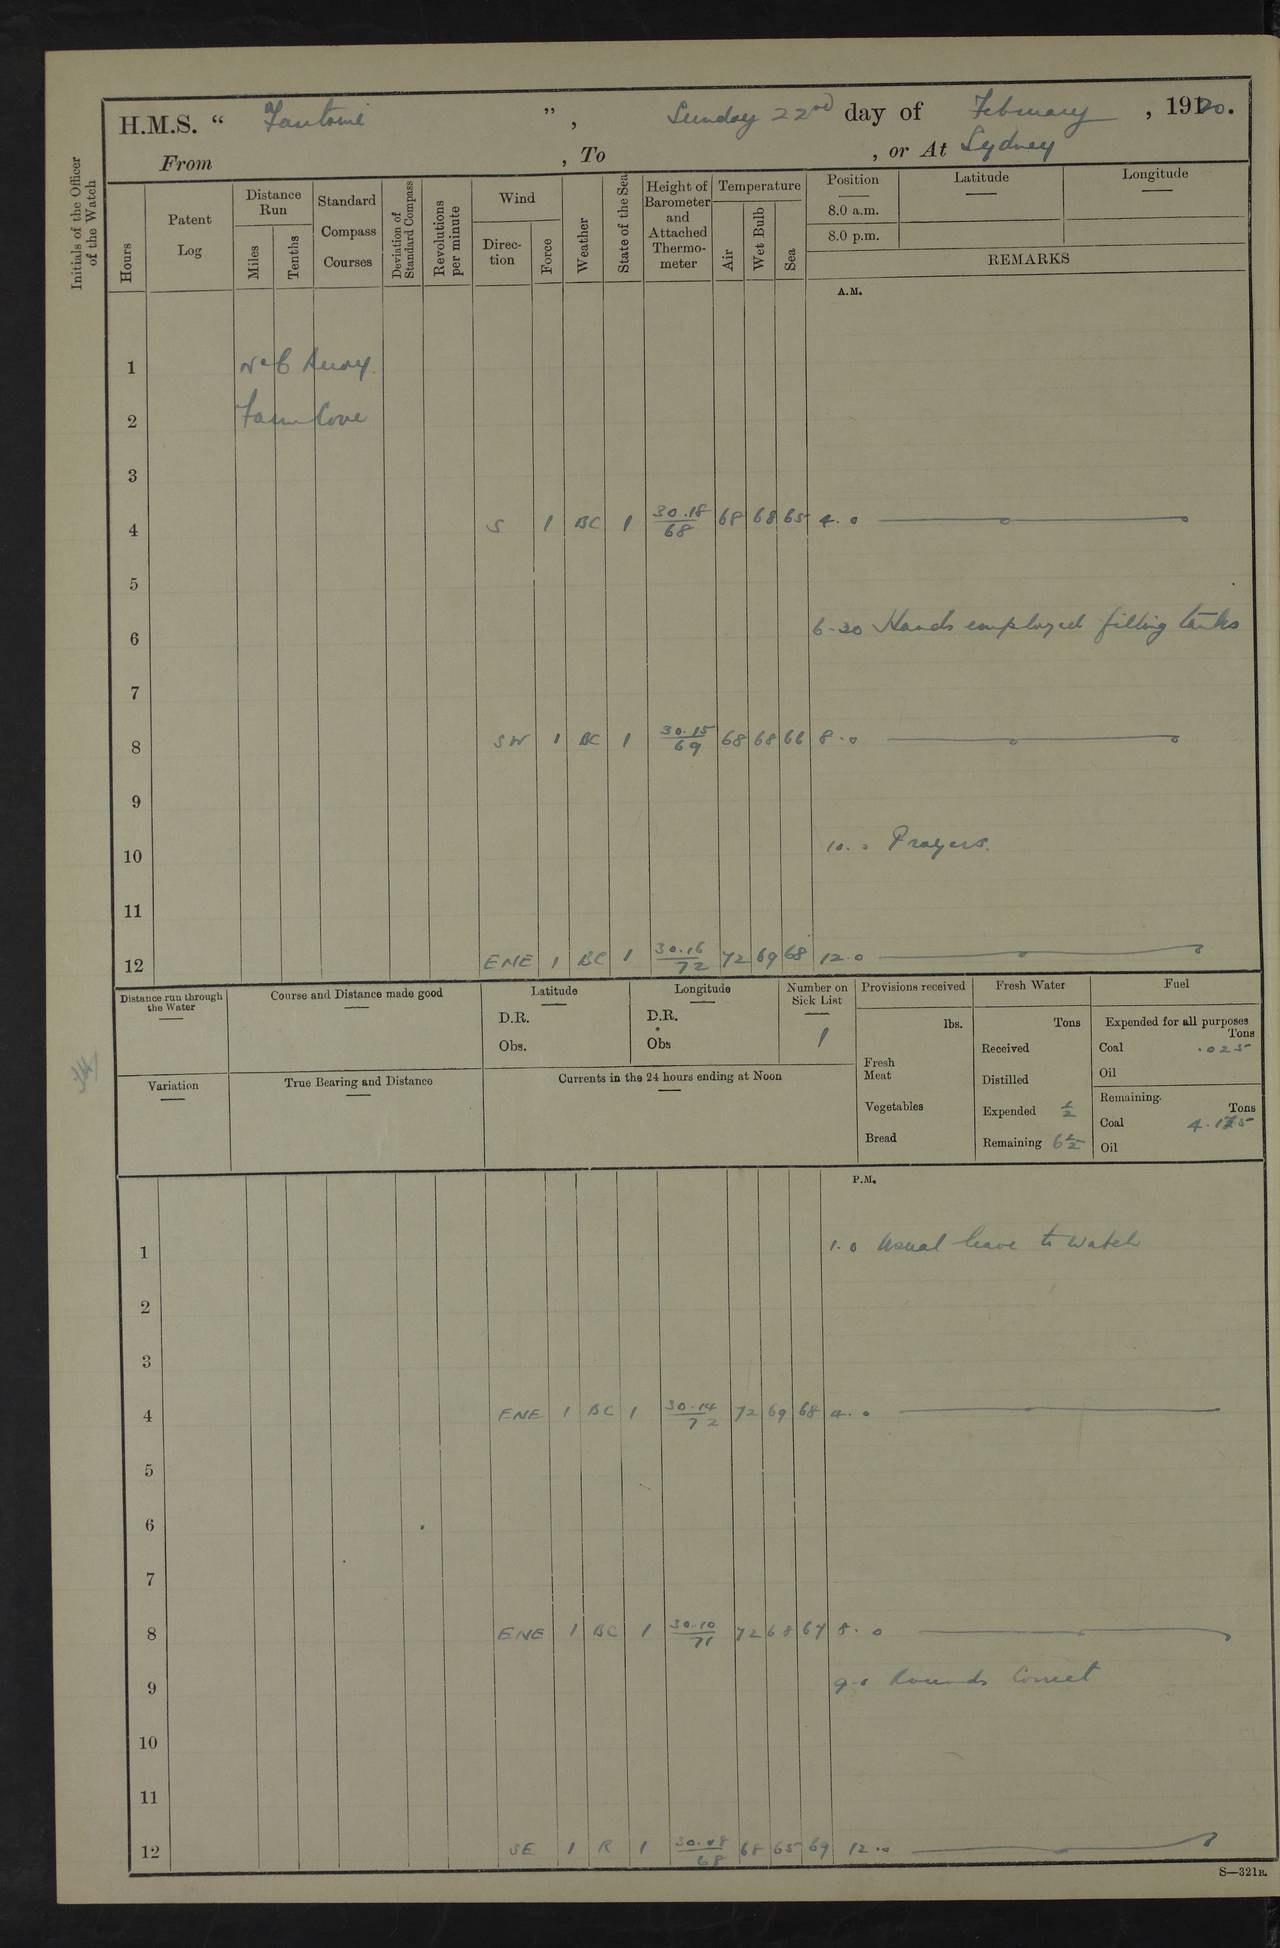 H.M.S. “ Fantome ”, Sunday 22nd day of February, 1920.
From , To , or At Sydney
Initials of the Officer of the Watch
Hours
Patent Log
Distance Run
Miles
Tenths
Standard Compass Courses
Deviation of Standard Compass
Revolutions per minute
Wind
Direction
Force
Weather
State of the Sea
Height of Barometer and Attached Thermometer
Temperature
Air
Wet Bulb
Sea
Position
Latitude
Longitude
8.0 a.m.
8.0 p.m.
REMARKS
A.M.
1 No 6 Buoy.
2 Farm Cove
3
4 S 1 BC 1 30.18/68 68 68 65 4.0
5
6 6-30 Hands employed filling tanks
7
8 SW 1 BC 1 30.15/69 68 68 66 8.0
9
10 10.0 Prayers.
11
12 ENE 1 BC 1 30.16/72 72 69 68 12.0
Distance run through the Water
Course and Distance made good
Latitude
D.R.
Obs.
Longitude
D.R.
Obs
Number on Sick List
1
Provisions received
lbs.
Fresh Meat
Vegetables
Bread
Fresh Water
Tons
Received
Distilled
Expended ½
Remaining 6½
Fuel
Expended for all purposes
Tons
Coal .025
Oil
Remaining.
Tons
Coal
Oil
Variation
True Bearing and Distance
Currents in the 24 hours ending at Noon
P.M.
1 1.0 Usual leave to watch
2
3
4 ENE 1 BC 1 30.14/72 72 69 68 4.0
5
6
7
8 ENE 1 BC 1 30.10/71 72 68 67 8.0
9 9.0 Rounds Correct
10
11
12 SE 1 R 1 30.08/68 68 65 69 12.0
S—321B.